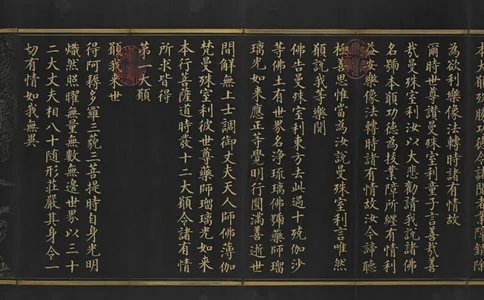 本大願殊勝功德令諸聞者業障銷除
為欲利樂像法轉時諸有情故
爾時世尊讚曼殊室利童子言善哉善
哉曼殊室利汝以大悲勸請我說諸佛
名號本願功德為拔業障所纏有情利
益安樂像法轉時諸有情故汝今諦聽
極善思惟當為汝說曼殊室利言唯然
願說我等樂聞
佛告曼殊室利東方去此過十殑伽沙
等佛土有世界名淨琉璃佛號藥師琉
璃光如來應正等覺明行圓滿善逝世
間解無上士調御丈夫天人師佛薄伽
梵曼殊室利彼世尊藥師瑠璃光如來
本行菩薩道時發十二大願令諸有情
所求皆得
第一大願
願我來世
得阿耨多羅三藐三菩提時自身光明
熾然照曜無量無數無邊世界以三十
二大丈夫相八十随形莊嚴其身令一
切有情如我無異